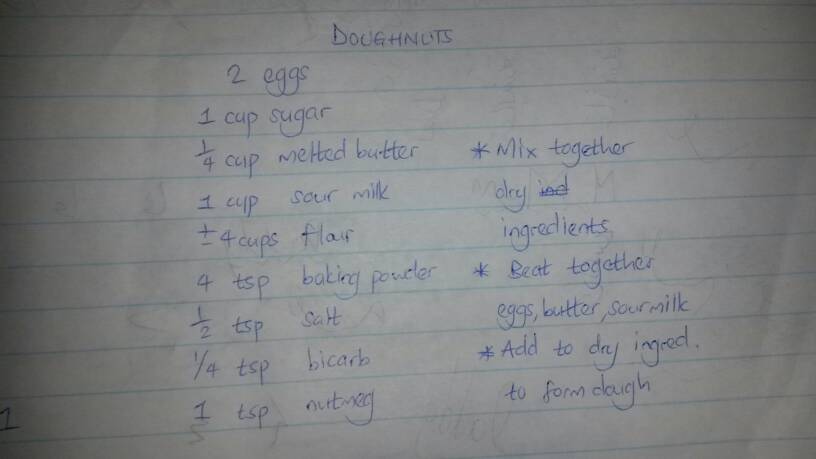 DOUGHNUTS
2 eggs
1 cup sugar
1/4 cup melted butter
1 cup sour milk
± 4 cups flair
4 tsp baking powder
1/2 tsp salt
1/4 tsp bicarb
1/5 tsp nutmeg
* Mix together
dry ind
ingredients
* Beat together
eggs, butter, sour milk
* Add to dry ingred.
to form dough
1